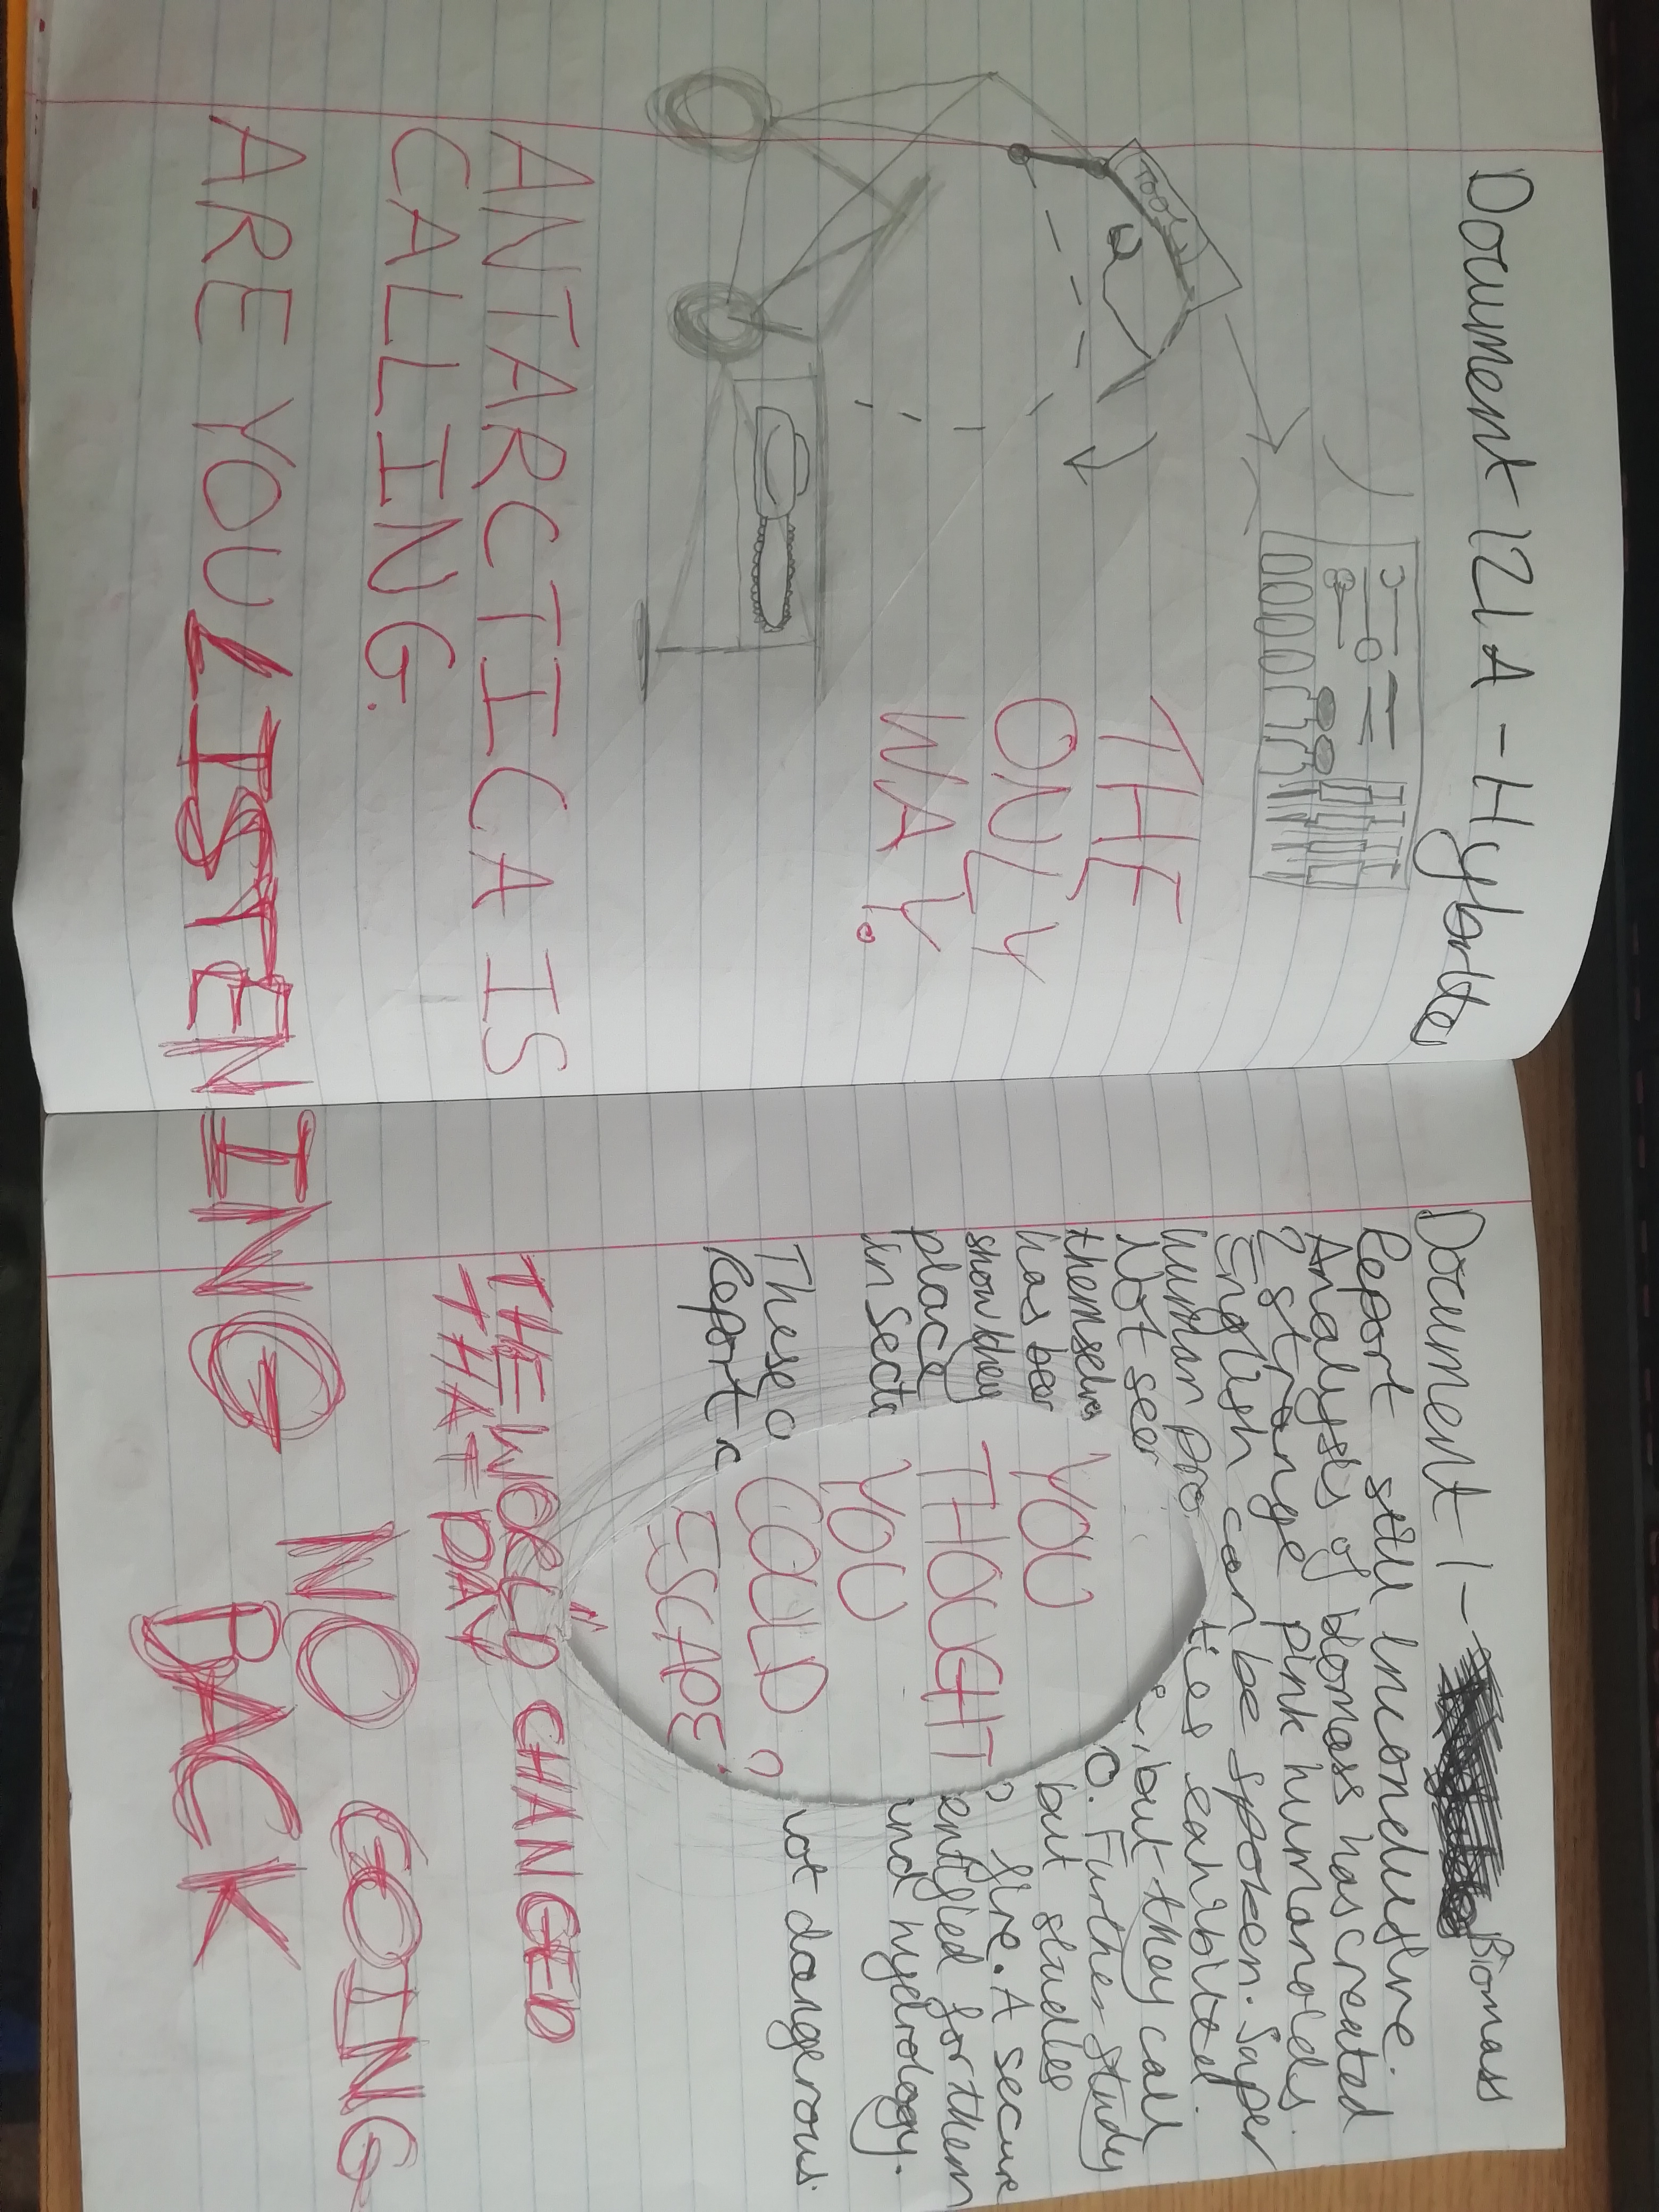 Document 121A - Hybrite
TOOLS
THE
ONLY
WAY.
ANTARCTICA IS
CALLING.
ARE YOU LISTENING
Document 1 - Biomass
Report still inconclusive.
Analysis of biomass has created
2 strange pink humanoids.
English can be spoken. Super
human pro ties exhibited.
Not seen , but they call
themselves O. Further study
has bee but studies
show they fire. A secure
place entified for them
in secto and hydrology.
These c not dangerous.
Report c
YOU
THOUGHT
YOU
COULD
ESCAPE?
THE WORLD CHANGED
THAT DAY
NO GOING
BACK